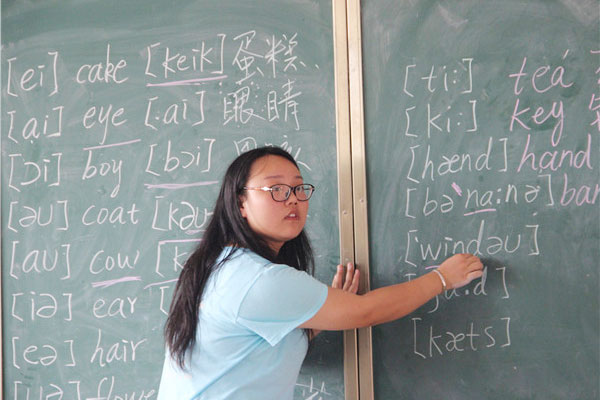 [ei] cake [keik] 蛋糕
[ai] eye [:ai] 眼睛
[ɔi] boy [bɔi]
[əu] coat [kəu
[au] cow [k
[iə] ear [
[eə] hair
flower
[ti:] teá
[ki:] key
[hænd] hand
[bə'na:nə] ban
['windəu]
[kæts]